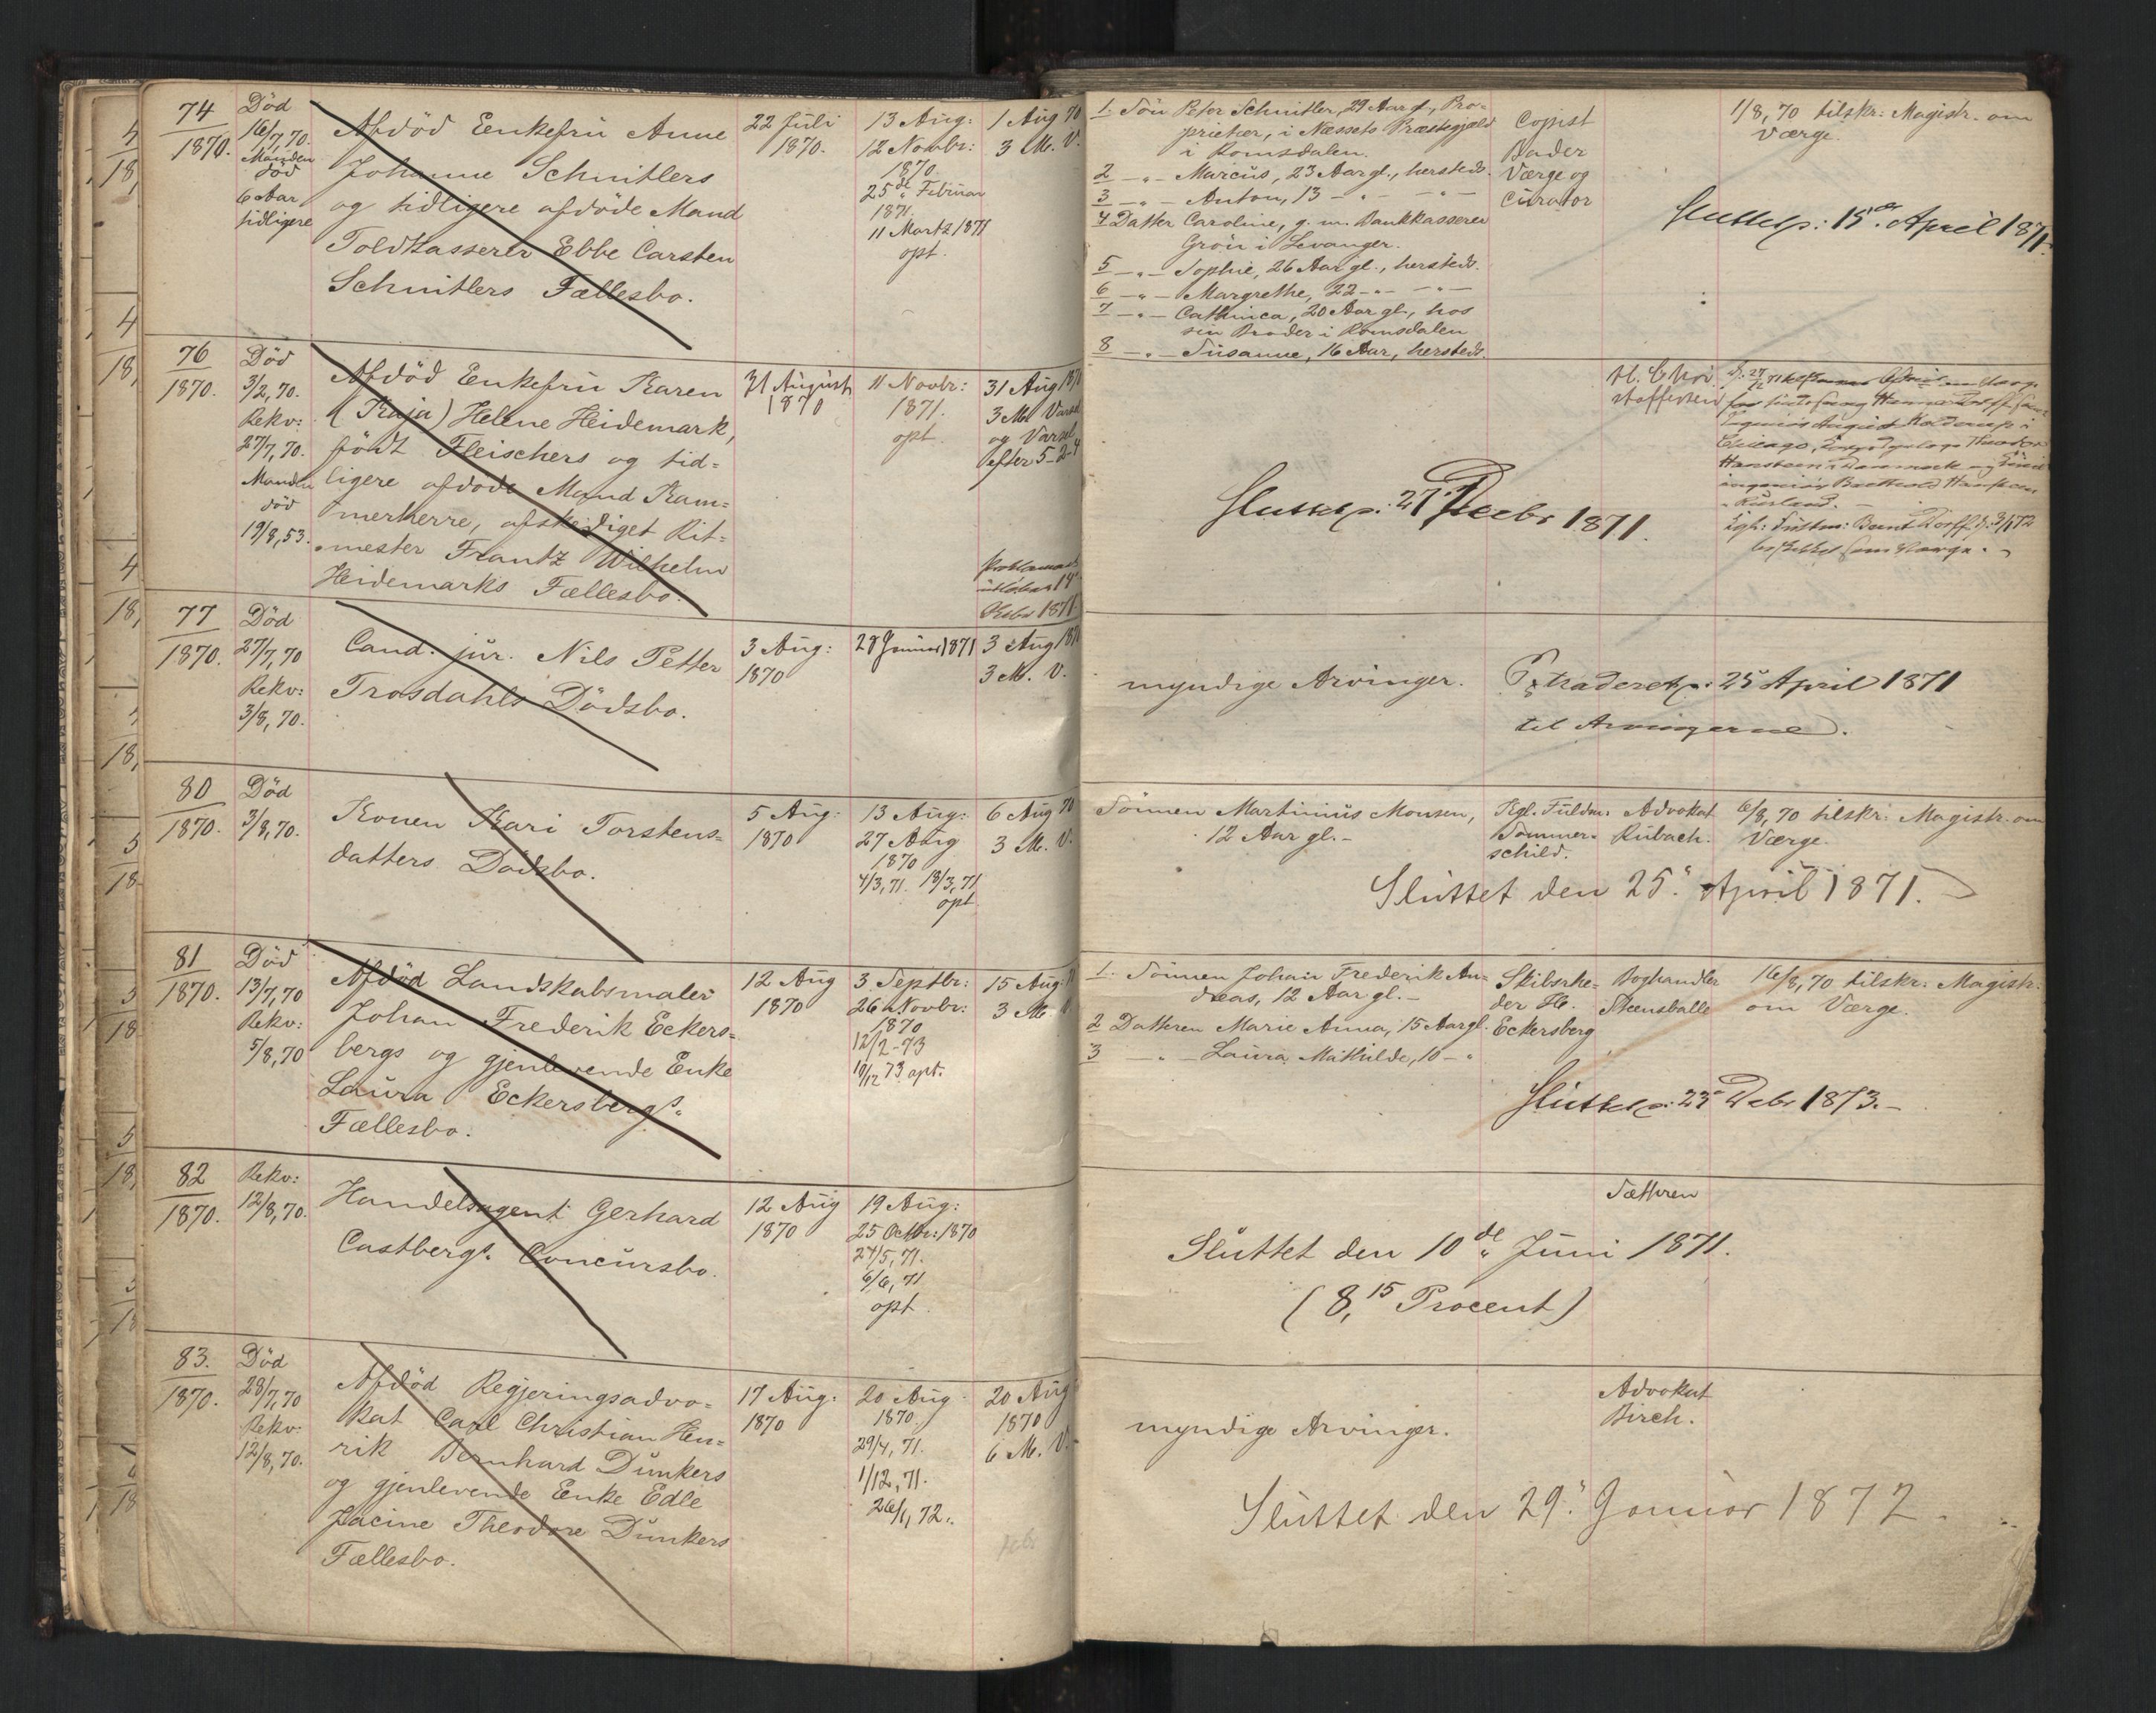 74
1870.
Död
16/7, 70.
Manden
död
6 Aar
tidligere
Afdöd Enkefru Anne
Johanne Schnitlers
og tidligere afdöde Mand
Toldkasserer Ebbe Carsten
Schnitlers Fællesbo.
22 Juli
1870.
13 Aug:
12 Novbr:
1870
25de Februar
1871.
11 Marts 1871
opt.
1 Aug 70
3 M. V.
1. Sön Peter Schnitler, 29 Aar gl., Pro=
prietær, i Næssets Præstegjæld
i Romsdalen.
2 -"- Marcus, 23 Aar gl., hersteds.
3 -"- Anton, 13 - " - - " -
4 Datter Caroline, g. m. Bankkasserer
Grön i Levanger.
5 -"- Sophie, 26 Aar gl., hersteds.
6 -"- Margrethe, 22 -"- -"-
7 -"- Cathinca, 20 Aar gl., hos
sin Broder i Romsdalen
8 -"- Susanne, 16 Aar, hersteds.
Copist
Bader
Værge og
Curator
1/8, 70 tilskr: Magistr. om
Værge.
Sluttet d: 15de April 1871.
76
1870.
Död
3/2, 70.
Rekv:
27/7, 70.
Manden
död
19/8, 53.
Afdöd Enkefru Karen
(Kaja) Helene Heidemark,
födt Fleischers og tid=
ligere afdöde Mand Kam=
merherre, afskediget Rit=
mester Frantz Wilhelm
Heidemarks Fællesbo.
31 August
1870
11 Novbr:
1871.
opt.
31 Aug 1870
3 Md Varsel
og Varsel
efter 5-2-4
Proklamaet
udlöber 14
1871.
Sluttet d: 27 Decbr 1871.
77
1870.
Död
27/7, 70
Rekv:
3/8, 70.
Cand. jur. Nils Petter
Trosdahls Dödsbo.
3 Aug:
1870
28 Januar 1871
3 Aug 1870
3 M. V.
myndige Arvinger.
Extraderet d: 25 April 1871
til Arvingerne.
80
1870.
Död
3/8, 70.
Konen Kari Torstens=
datters Dödsbo.
5 Aug:
1870
13 Aug:
27 Aug
1870
4/3, 71. 18/3, 71
opt
6 Aug 70
3 M. V.
Sönnen Martinius Monsen,
12 Aar gl. -
Kgl. Fuldm.
Sommer=
schild.
Advokat
Rubach.
6/8, 70 tilskr: Magistr. om
Værge.
Sluttet den 25. April 1871.
81
1870.
Död
13/7, 70
Rekv:
5/8, 70
Afdöd Landskabsmaler
Johan Frederik Eckers=
bergs og gjenlevende Enke
Laura Eckersbergs
Fællesbo.
12 Aug
1870
3. Septbr:
26 Novbr:
1870
12/2-73
10/12 73 opt.
15 Aug: 70
3 M. V.
1. Sönnen Johan Frederik An=
dreas, 12 Aar gl. -
2 Datteren Marie Anna, 15 Aar gl.
3 -"- Laura Mathilde, 10 - "
Skibsrhe=
der H.
Eckersberg
Boghandler
Steensballe
16/8, 70 tilskr: Magistr.
om Værge.
Sluttet d: 23 Debr 1873.-
82
1870.
Rekv:
12/8, 70.
Handelsagent Gerhard
Castbergs Concursbo.
12 Aug
1870
19 Aug:
25 Octbr: 1870
27/5, 71.
6/6, 71
opt.
Sæthren
Sluttet den 10de Juni 1871.
(8,15 Procent)
83.
1870.
Död
28/7, 70
Rekv:
12/8, 70.
Afdöd Regjeringsadvo=
kat Carl Christian Hen=
rik Bernhard Dunkers
og gjenlevende Enke Edle
Jacine Theodore Dunkers
Fællesbo.
17 Aug:
1870
20 Aug
1870
29/4, 71.
1/12, 71.
26/1, 72.
20 Aug
1870
6 M. V.
myndige Arvinger.
Advokat
Birch.
Sluttet den 29. Januar 1872.